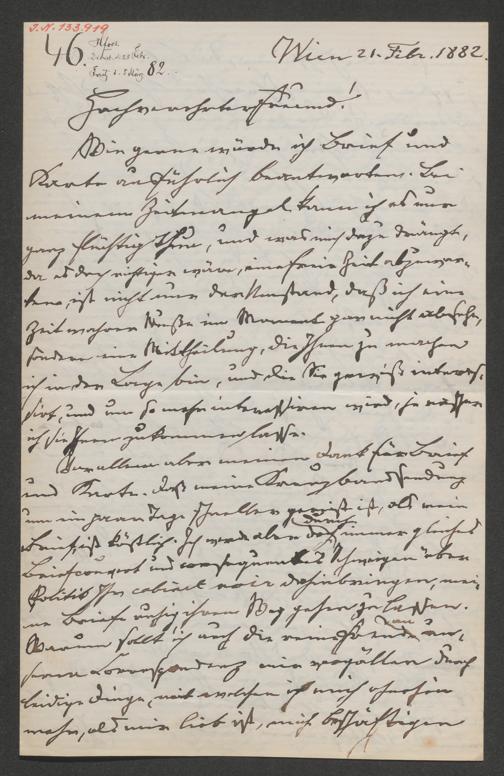 J.N. 133.919
46.
82.
Wien 21. Febr. 1882.
Hochverehrter Freund!
Wie gerne würde ich Brief und
Karte ausführlich beantworten. Bei
meinem Zeitmangel kann ich es nur
ganz flüchtig thun, und was mich dazu drängt,
da es doch richtiger wäre, eine freie Zeit abzuwar-
ten, ist nicht nur der Umstand, daß ich eine
Zeit wahrer Muße im Moment gar nicht absehe,
sondern eine Mittheilung, die Ihnen zu machen
ich in der Lage bin, und die Sie gewiß interes-
sirt, und um so mehr interessiren wird, je rascher
ich sie Ihnen zukommen lasse.
Vor allem aber meinen Dank für Brief
und Karte. Daß meine Kreuzbandsendung
um ein paar Tage schneller gereist ist, als mein
Brief, ist köstlich. Ich werde aber durch immer gleiches
Briefcouvert und consequentes Schweigen über
Politik Ihr cabinet noir dahinbringen, mei-
ne Briefe ruhig ihren Weg gehen zu lassen.
Warum sollt' ich auch die reine Freude an un-
serer Correspondenz mir vergällen durch
leidige Dinge, mit welchen ich mich ohnehin
mehr, als mir lieb ist, mich beschäftigen